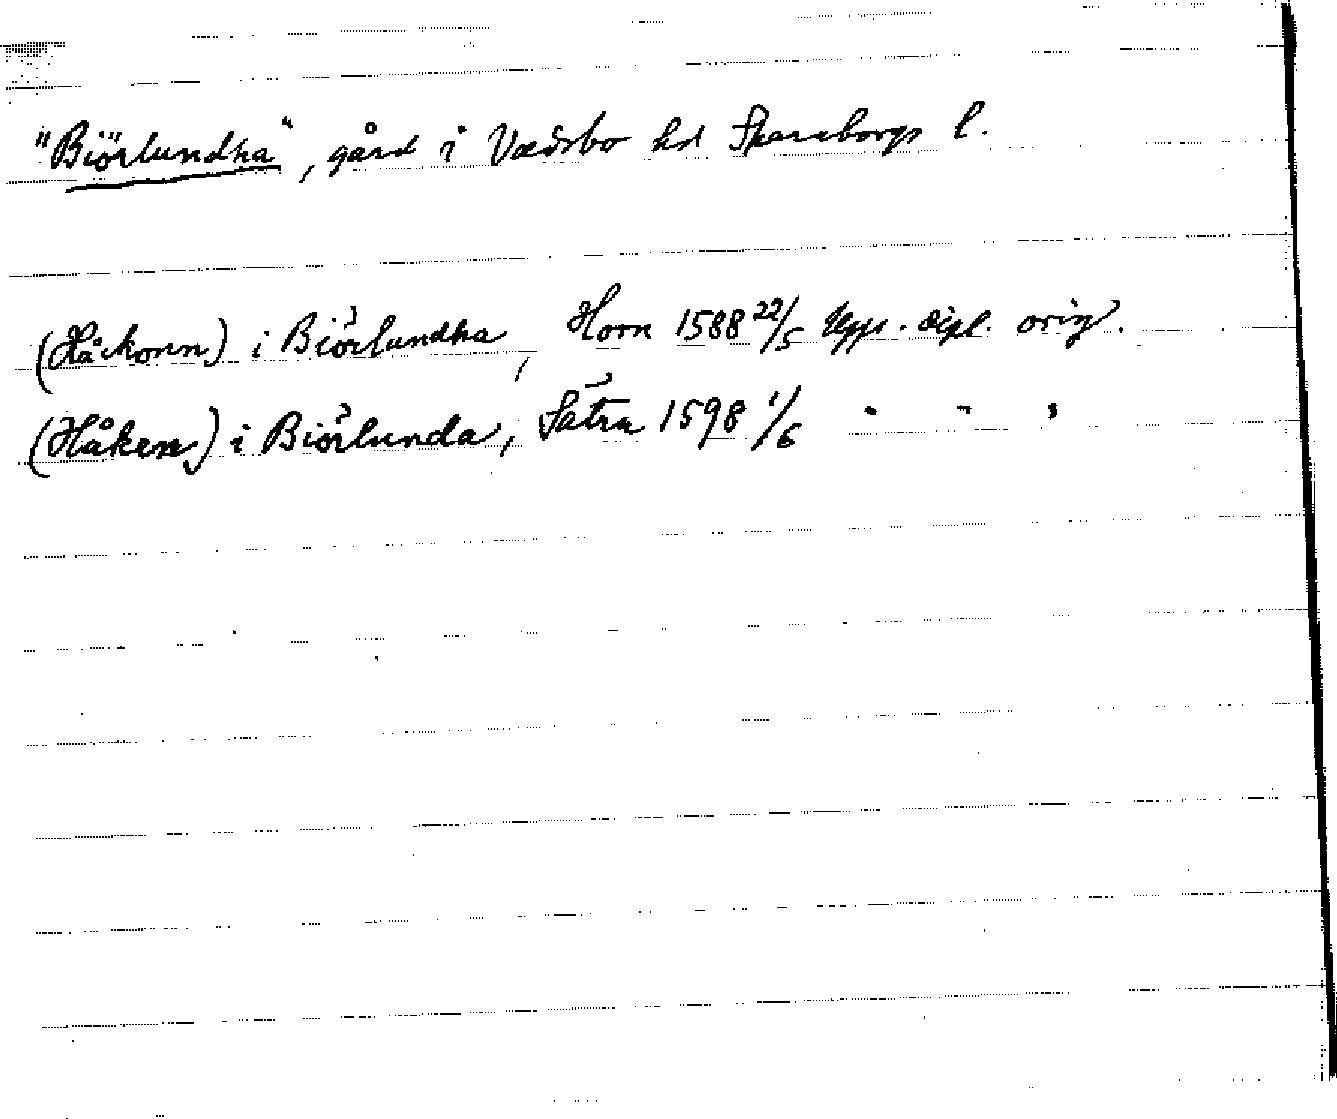 "Biörlundha", gård i Vadsbo hd Skaraborgs l.
(Håckonn) i Biörlundha, Horn 1588 22/5 Upps. dipl. orig.
(Håken) i Biörlunda, Sätra 1598 1/6 " " "